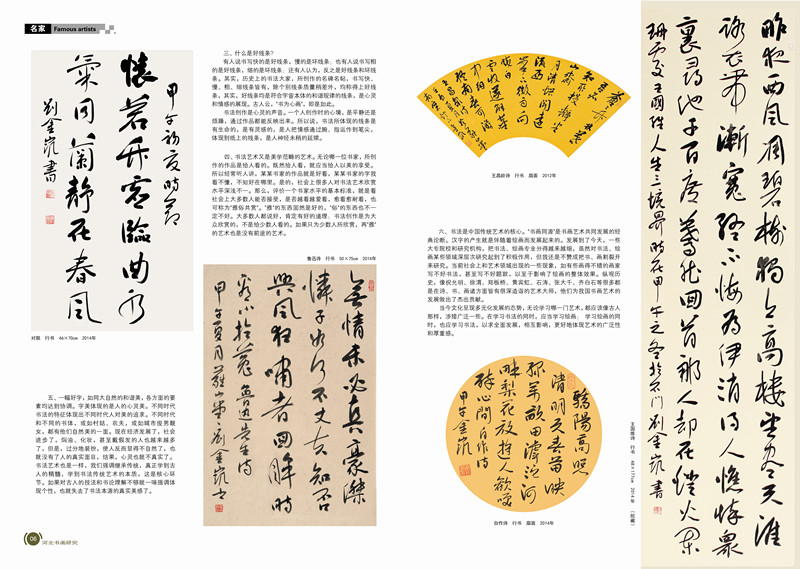 名家 Famous artists
懷若竹虛臨曲水
氣同蘭靜在春風
甲午初夏時節
劉金凱書
对联　行书　66×70cm　2014年
三、什么是好线条?
有人说书写快的是好线条，慢的是坏线条；也有人说书写粗
的是好线条，细的是坏线条；还有人认为，反之是好线条和坏线
条。其实，历史上的书法大家，所创作的名碑名帖，书写快、
慢、粗、细线条皆有，除个别线条质量稍差外，均称得上好线
条。其实，好线条均是符合宇宙本体的和谐规律的线条，是心灵
和情感的展现。古人云，“书为心画”，即是如此。
书法创作是心灵的声音。一个人创作时的心境，是平静还是
烦躁，通过作品都能反映出来。所以说，书法所体现的线条是
有生命的，是有灵感的，是人把情感通过腕、指运作到笔尖，
体现到纸上的线条，是人神经末梢的延续。
四、书法艺术又是美学范畴的艺术。无论哪一位书家，所创
作的作品是给人看的。既然给人看，就应当给人以美的享受。
所以经常听人讲，某某书家的作品就是好看，某某书家的字我
看不懂，不知好在哪里。是的，社会上很多人对书法艺术欣赏
水平深浅不一。那么，评价一个书家水平的基本标准，就是看
社会上大多数人能否接受，是否越看越爱看，愈看愈耐看，也
可称为“雅俗共赏”。“雅”的东西固然是好的，“俗”的东西也不一
定不好。大多数人都说好，肯定有好的道理。书法创作是为大
众欣赏的，不是给少数人看的。如果只为少数人所欣赏，再“雅”
的艺术也是没有前途的艺术。
鲁迅诗　行书　50×75cm　2014年
無情未必真豪傑
憐子如何不丈夫知否
興風狂嘯者回眸時
看小於菟 魯迅先生詩
五、一幅好字，如同大自然的和谐美，各方面的要
素均达到协调。字美体现的是人的心灵美。不同时代
书法的特征体现出不同时代人对美的追求。不同时代
和不同的书体，或如村姑、农夫，或如城市俊男靓
女，都有他们自然美的一面。现在经济发展了，社会
进步了，焗油、化妆、甚至戴假发的人也越来越多
了。但是，过分地装扮，使人反而显得不自然了，也
就没有了人的真实面目，结果，心灵也就不真实了。
书法艺术也是一样，我们强调继承传统，真正学到古
人的精髓，学到书法传统艺术的本质，这是核心环
节。如果对古人的技法和书论理解不够就一味强调体
现个性，也就失去了书法本源的真实美感了。
06 河北书画研究
王昌龄诗　行书　扇面　2012年
六、书法是中国传统艺术的核心。“书画同源”是书画艺术共同发展的经
典论断。汉字的产生就是伴随着绘画而发展起来的。发展到了今天，一些
大专院校和研究机构，把书法、绘画专业分得越来越细，虽然对书法、绘
画某些领域深层次研究起到了积极作用，但我还是不赞成把书、画割裂开
来研究。当前社会上和艺术领域出现的一些现象，如有些画得不错的画家
写不好书法，甚至写不好题款，以至于影响了绘画的整体效果。纵观历
史，像祝允明、徐渭、郑板桥、黄宾虹、石涛、张大千、齐白石等很多都
是在诗、书、画诸方面皆有很深造诣的艺术大师，他们为我国书画艺术的
发展做出了杰出贡献。
当今文化呈现多元化发展的态势，无论学习哪一门艺术，都应该像古人
那样，涉猎广泛一些。在学习书法的同时，应当学习绘画；学习绘画的同
时，也应学习书法，以求全面发展，相互影响，更好地体现艺术的广泛性
和厚重感。
驕陽高照
清明天春苗映
綠萬畝田滹沱河
畔梨花放遊人歡唱
醉心間 自作詩
甲午金凱
自作诗　行书　扇面　2014年
昨夜西風凋碧樹獨上高樓望盡天涯
路衣帶漸寬終不悔為伊消得人憔悴眾
裏尋他千百度驀然回首那人卻在燈火闌
珊處 王國維人生三境界 時在甲午之冬於石門 劉金凱書
王国维诗　行书　46×175cm　2014年　（收藏）